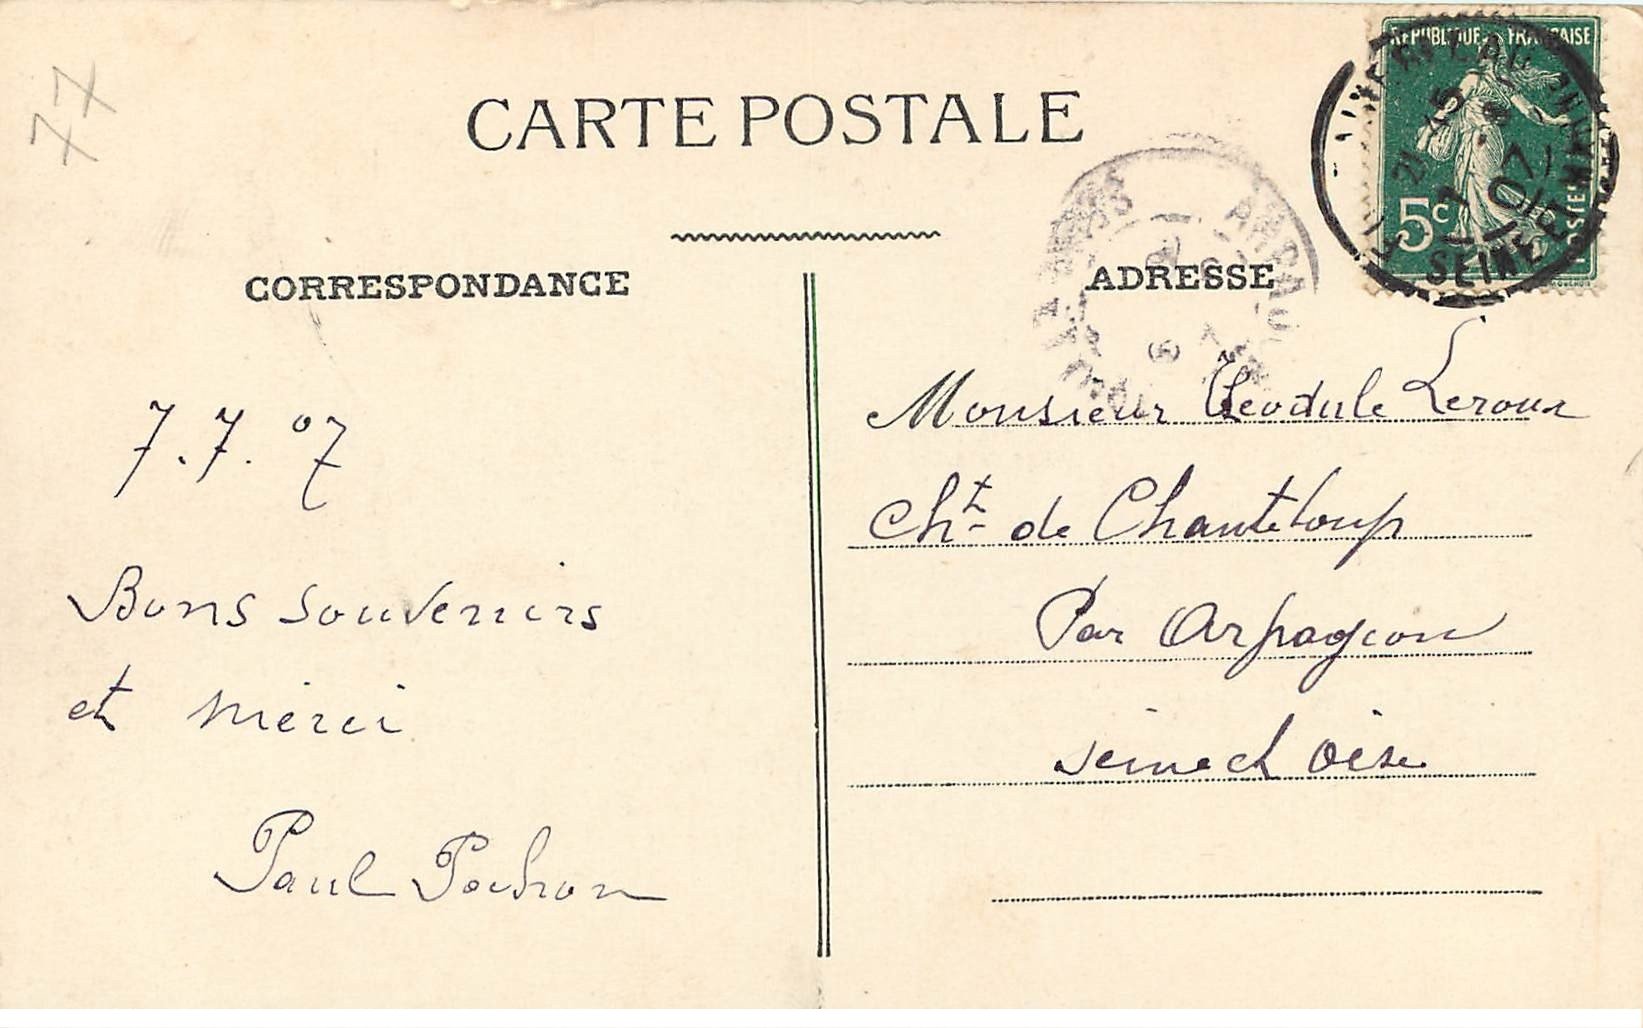 77
CARTE POSTALE
RÉPUBLIQUE FRANÇAISE
5c
POSTES
SEINE ET MARNE
CORRESPONDANCE
ADRESSE
7.7.07
Bons souvenirs
et merci
Paul Pochon
Monsieur Théodule Leroux
Cht de Chanteloup
Par Arpagcon
Seine et Oise